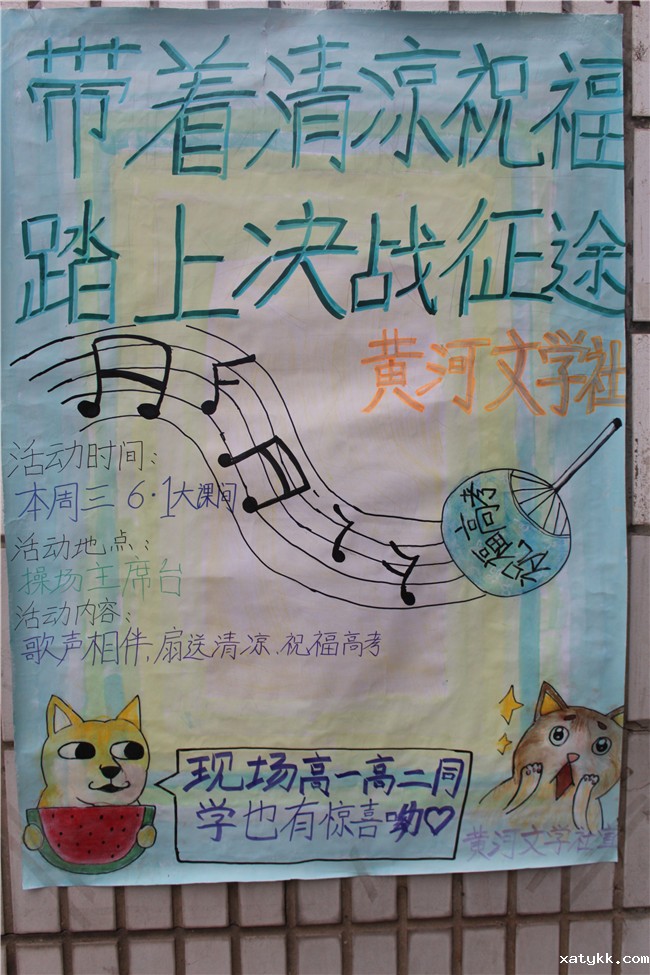 带着清凉祝福
踏上决战征途
黄河文学社
活动时间：
本周三 6·1大课间
活动地点：
操场主席台
活动内容：
歌声相伴，扇送清凉，祝福高考
祝福高考
现场高一高二同
学也有惊喜呦♡
黄河文学社宣
xatykk.com